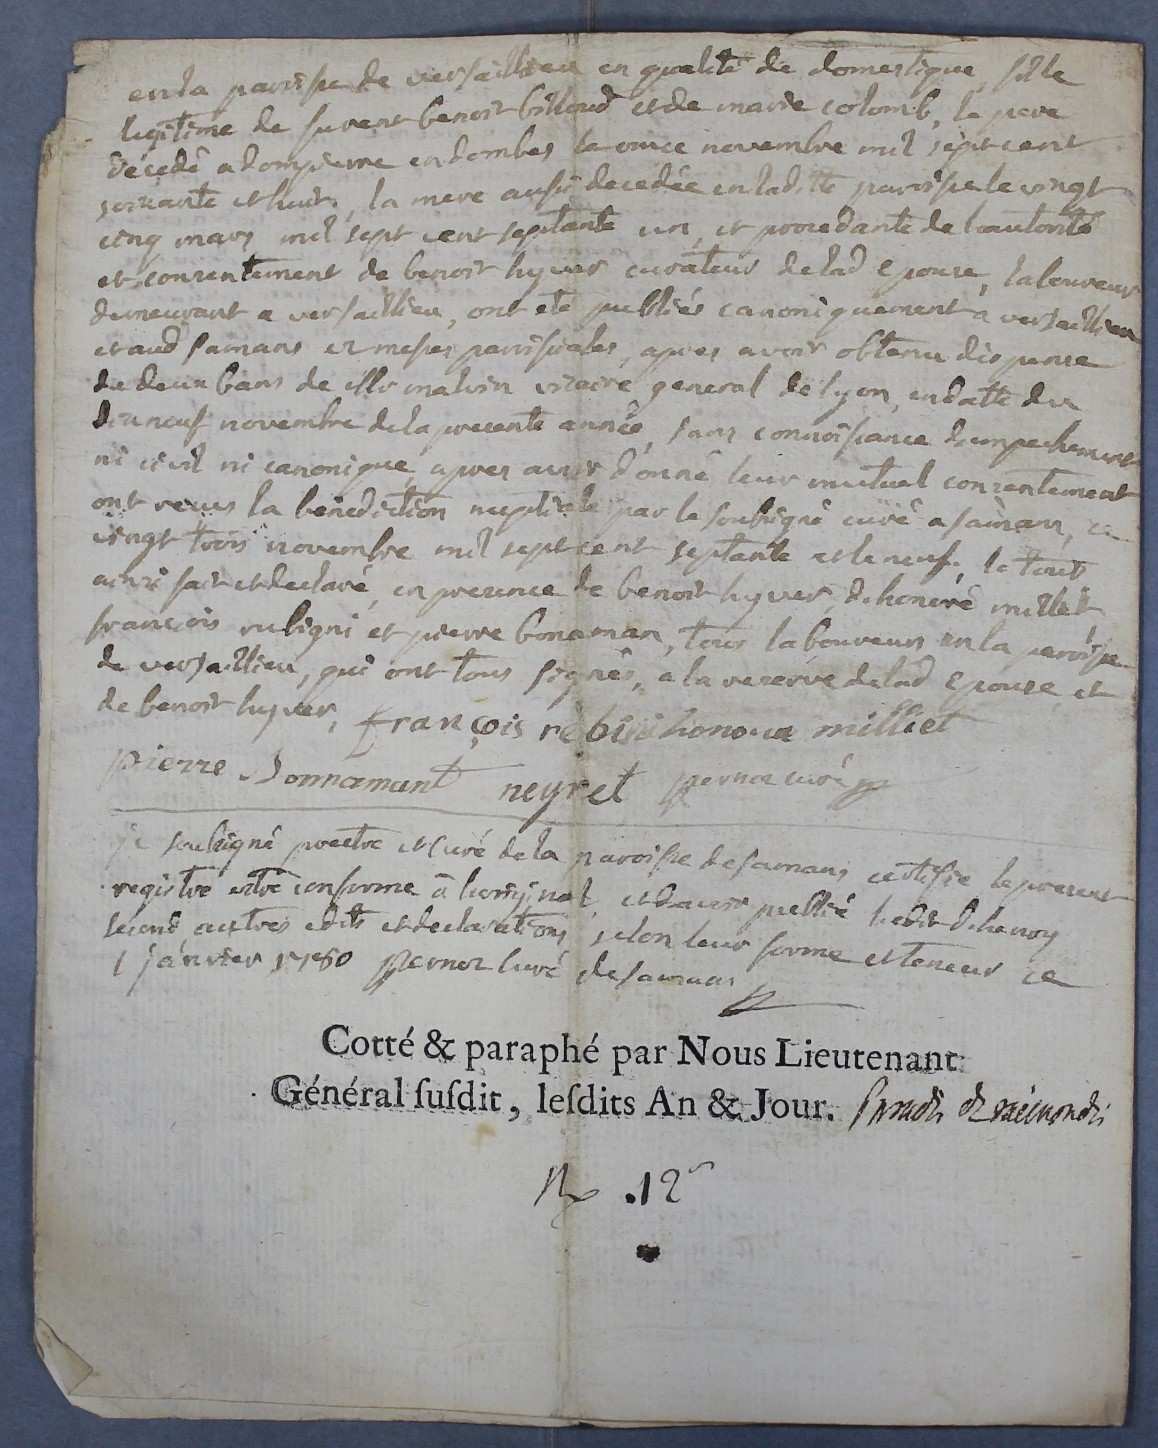 en la paroisse de versaillieu en qualité de domestique, fille
legitime de furent benoit billoud et de marie colomb, le pere
décedé a dompierre en dombes le onze novembre mil sept cent
soixante et huit, la mere aussi decedée en laditte paroisse le vingt
cinq mars mil sept cent septante un, et procedante de l'autorité
et consentement de benoit hyver curateur de lad epouse, laboureur
demeurant a versaillieu, ont eté publiés canoniquement a versaillieu
et aud samans ez messes paroissiales, apres avoir obtenu dispense
de deux bans de illr malvin vicaire general de lyon, en datte du
dix neuf novembre de la presente année, sans connoissance d'empechement
ni civil ni canonique, apres avoir donné leur mutuel consentement
ont reçus la bénédiction nuptiale par le soubsigné curé a samans, ce
vingt trois novembre mil sept cent septante et neuf, le tout
ainsi fait et declaré, en presence de benoit hyver, d'honoré milliet
françois rubigni et pierre bonaman, tous laboureurs en la paroisse
de versaillieu, qui ont tous signés, a la reserve de lad epouse et
de benoit hyver, françois honoré milliet
pierre Bonnamant neyret pernoz curé
je soubsigné prestre et curé de la paroisse de samans certifie le present
registre estre conforme à l'original, et d'avoir publié l'edit d'henry
second autres edits et declarations selon leur forme et teneur ce
1 janvier 1780 pernoz curé de samans
Cotté & paraphé par Nous Lieutenant
Général ſuſdit, leſdits An & Jour.
12